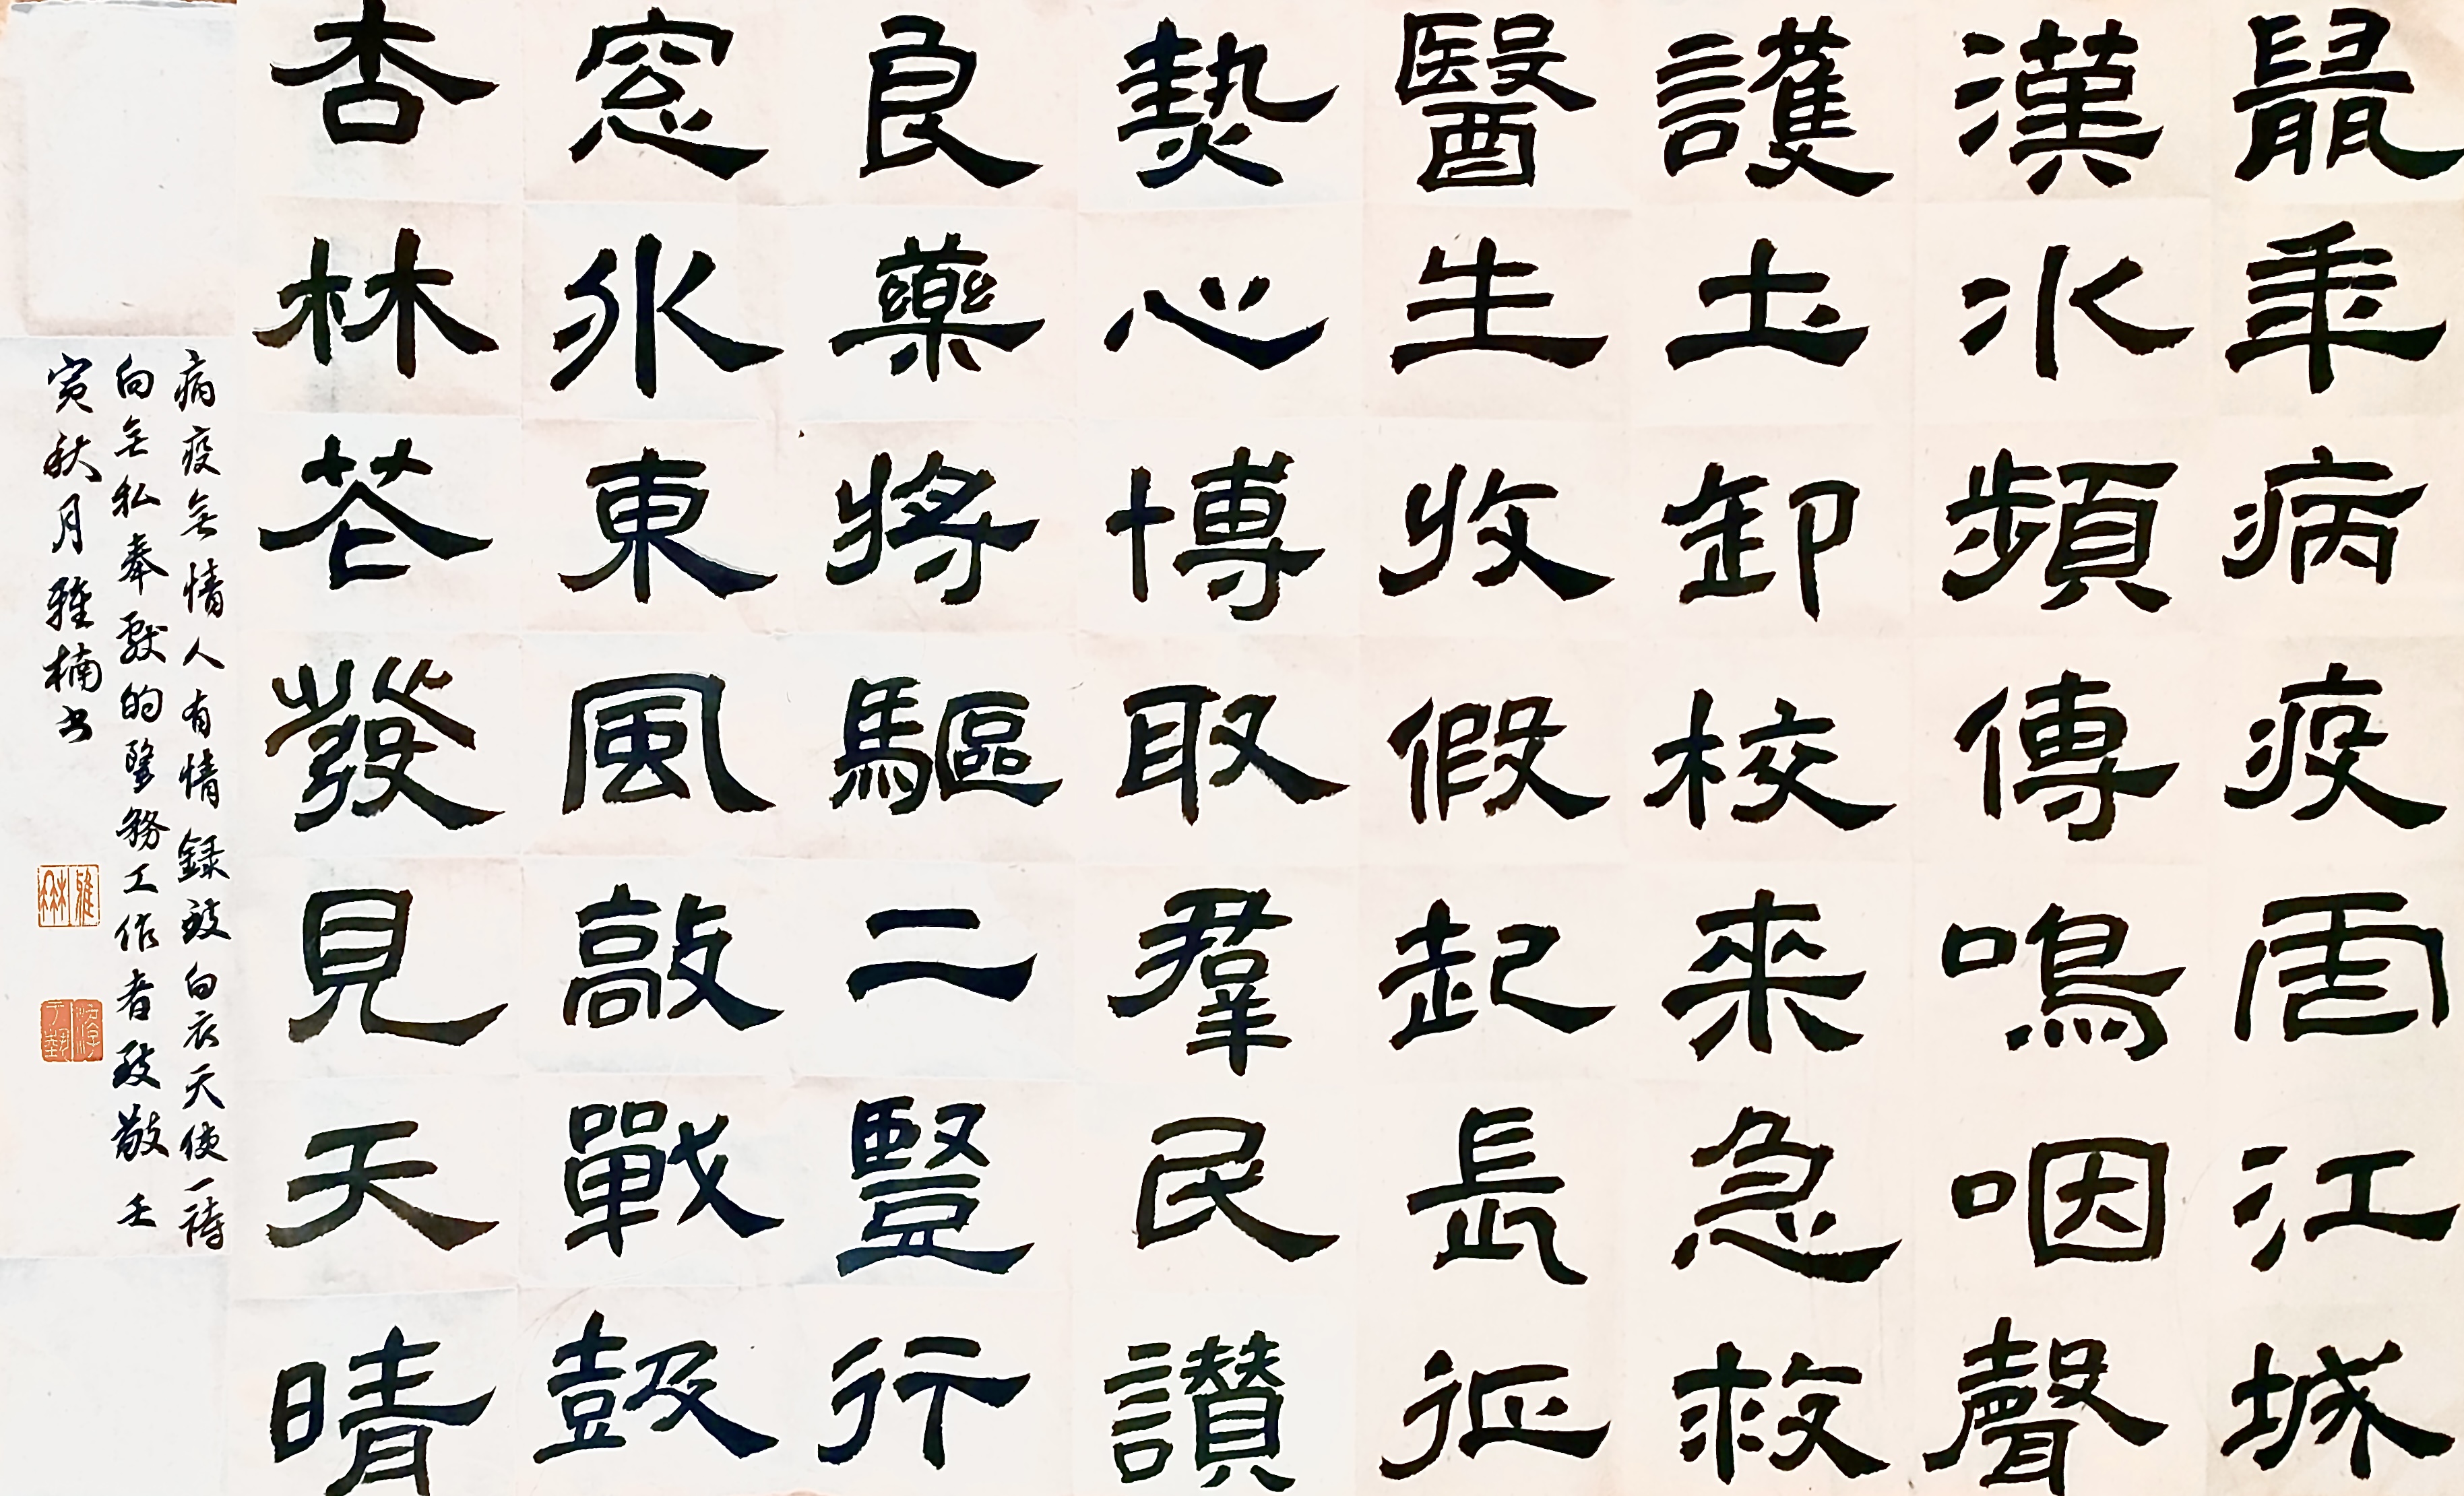 鼠年病疫江城
漢水頻傳鳴咽聲
護士卸校來急救
醫生收假起長征
熱心博取羣民讚
良藥將驅二豎行
窓外東風敲戰鼓
杏林花發見天晴
病疫無情人有情録致白衣天使一詩
向無私奉獻的醫務工作者致敬壬
寅秋月雅楠書